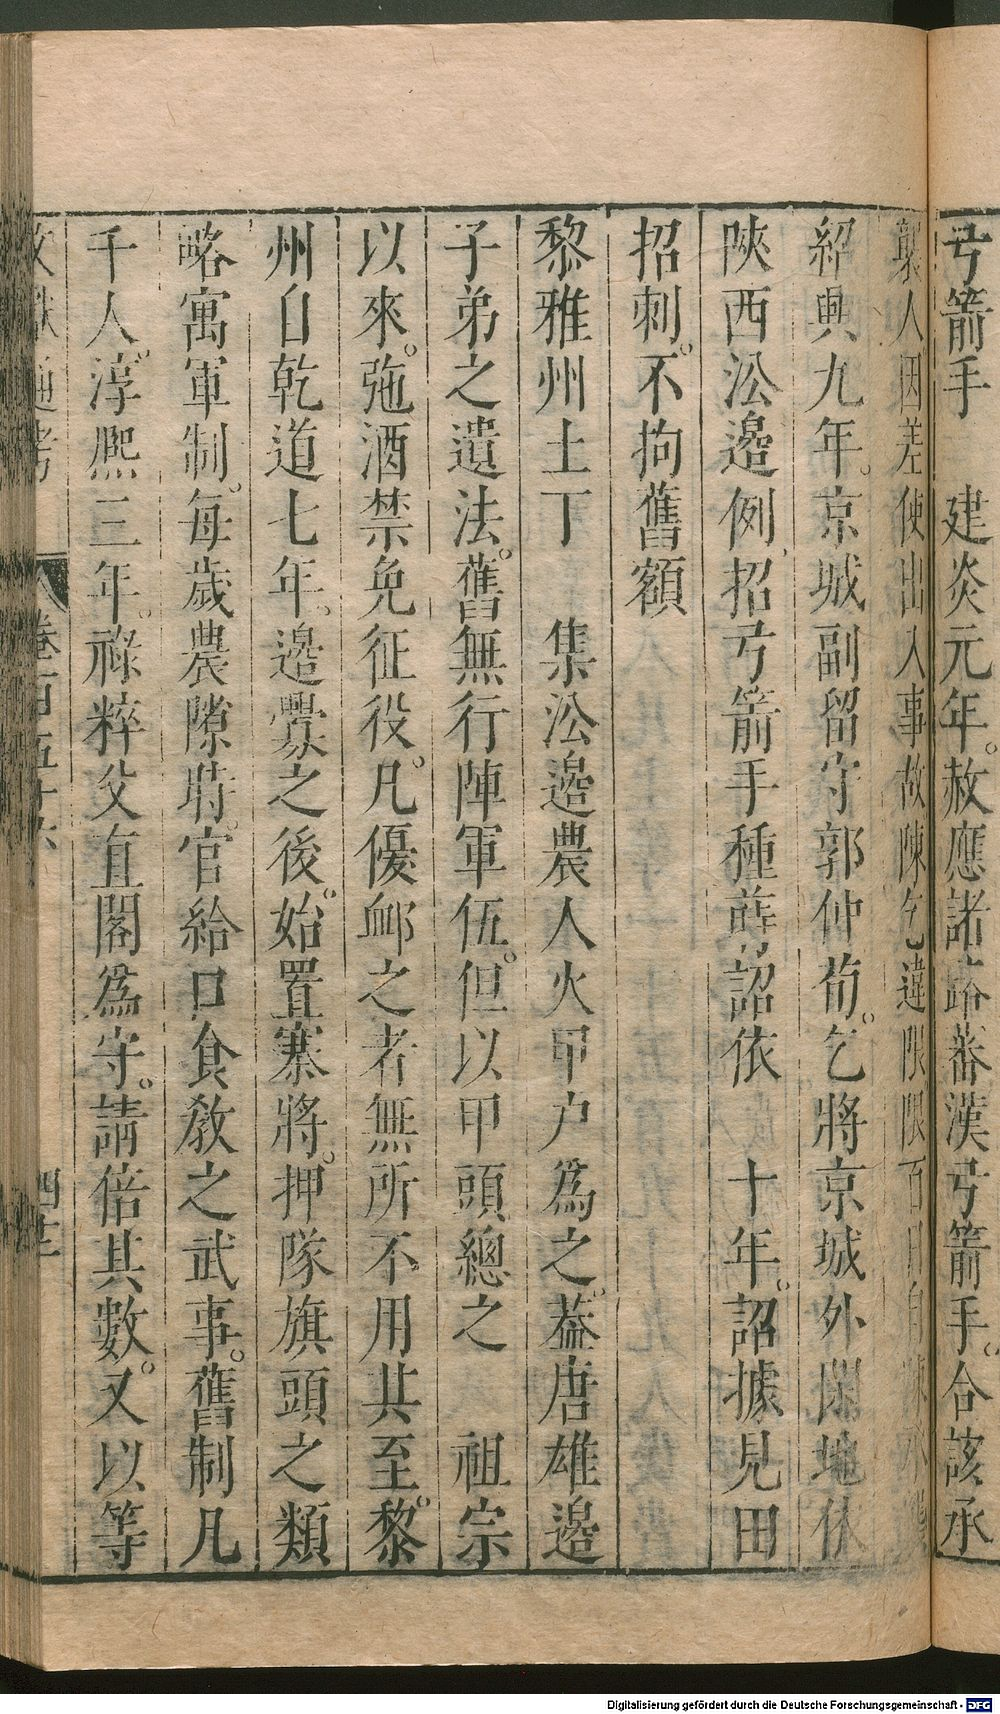 弓箭手　建炎元年赦應諸路蕃漢弓箭手合該承
襲人因差使出入事故陳乞違限限百日自陳
紹興九年京城副留守郭仲荀乞將京城外閑地依
陝西㳂邊例招弓箭手種蒔詔依　十年詔據見田
招刺不拘舊額
黎雅州土丁　集㳂邊農人火甲户爲之葢唐雄邊
子弟之遺法舊無行陣軍伍但以甲頭總之　祖宗
以來弛酒禁免征役凡優䘏之者無所不用其至黎
州自乾道七年邊釁之後始置寨將押隊旗頭之類
略寓軍制每歲農隙時官給口食敎之武事舊制凡
千人淳熈三年祿粹父直閣爲守請倍其數又以等
文獻通考　卷一百五十六　四十三
Digitalisierung gefördert durch die Deutsche Forschungsgemeinschaft - DFG